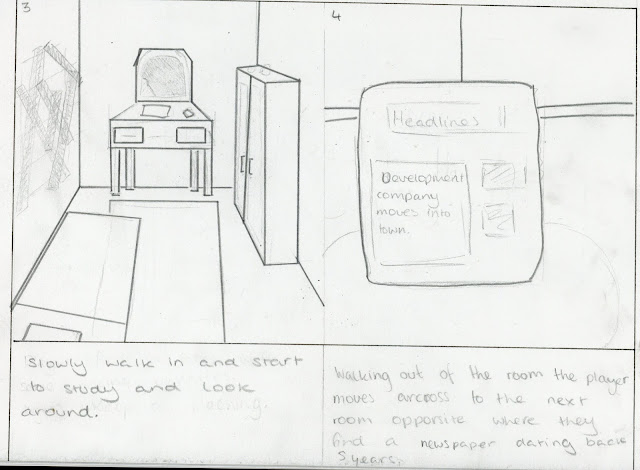 3
slowly walk in and start
to study and look
around.
4
Headlines
Development
company
moves into
town.
Walking out of the room the player
moves arcross to the next
room opposite where they
find a newspaper dating back
5 years,